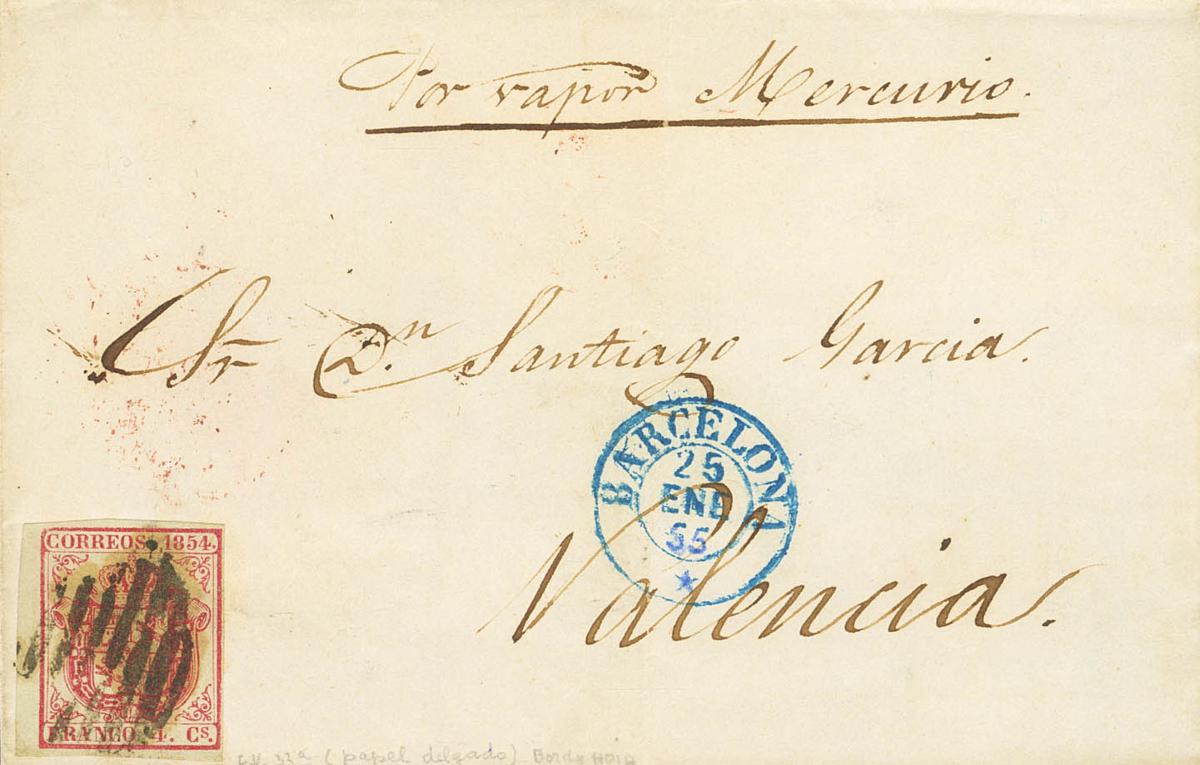 Por vapor Mercurio.
Sr Dn. Santiago Garcia.
BARCELONA
25
ENE
55
Valencia.
CORREOS 1854.
FRANCO 4. Cs.
(papel delgado) Borde HOJA